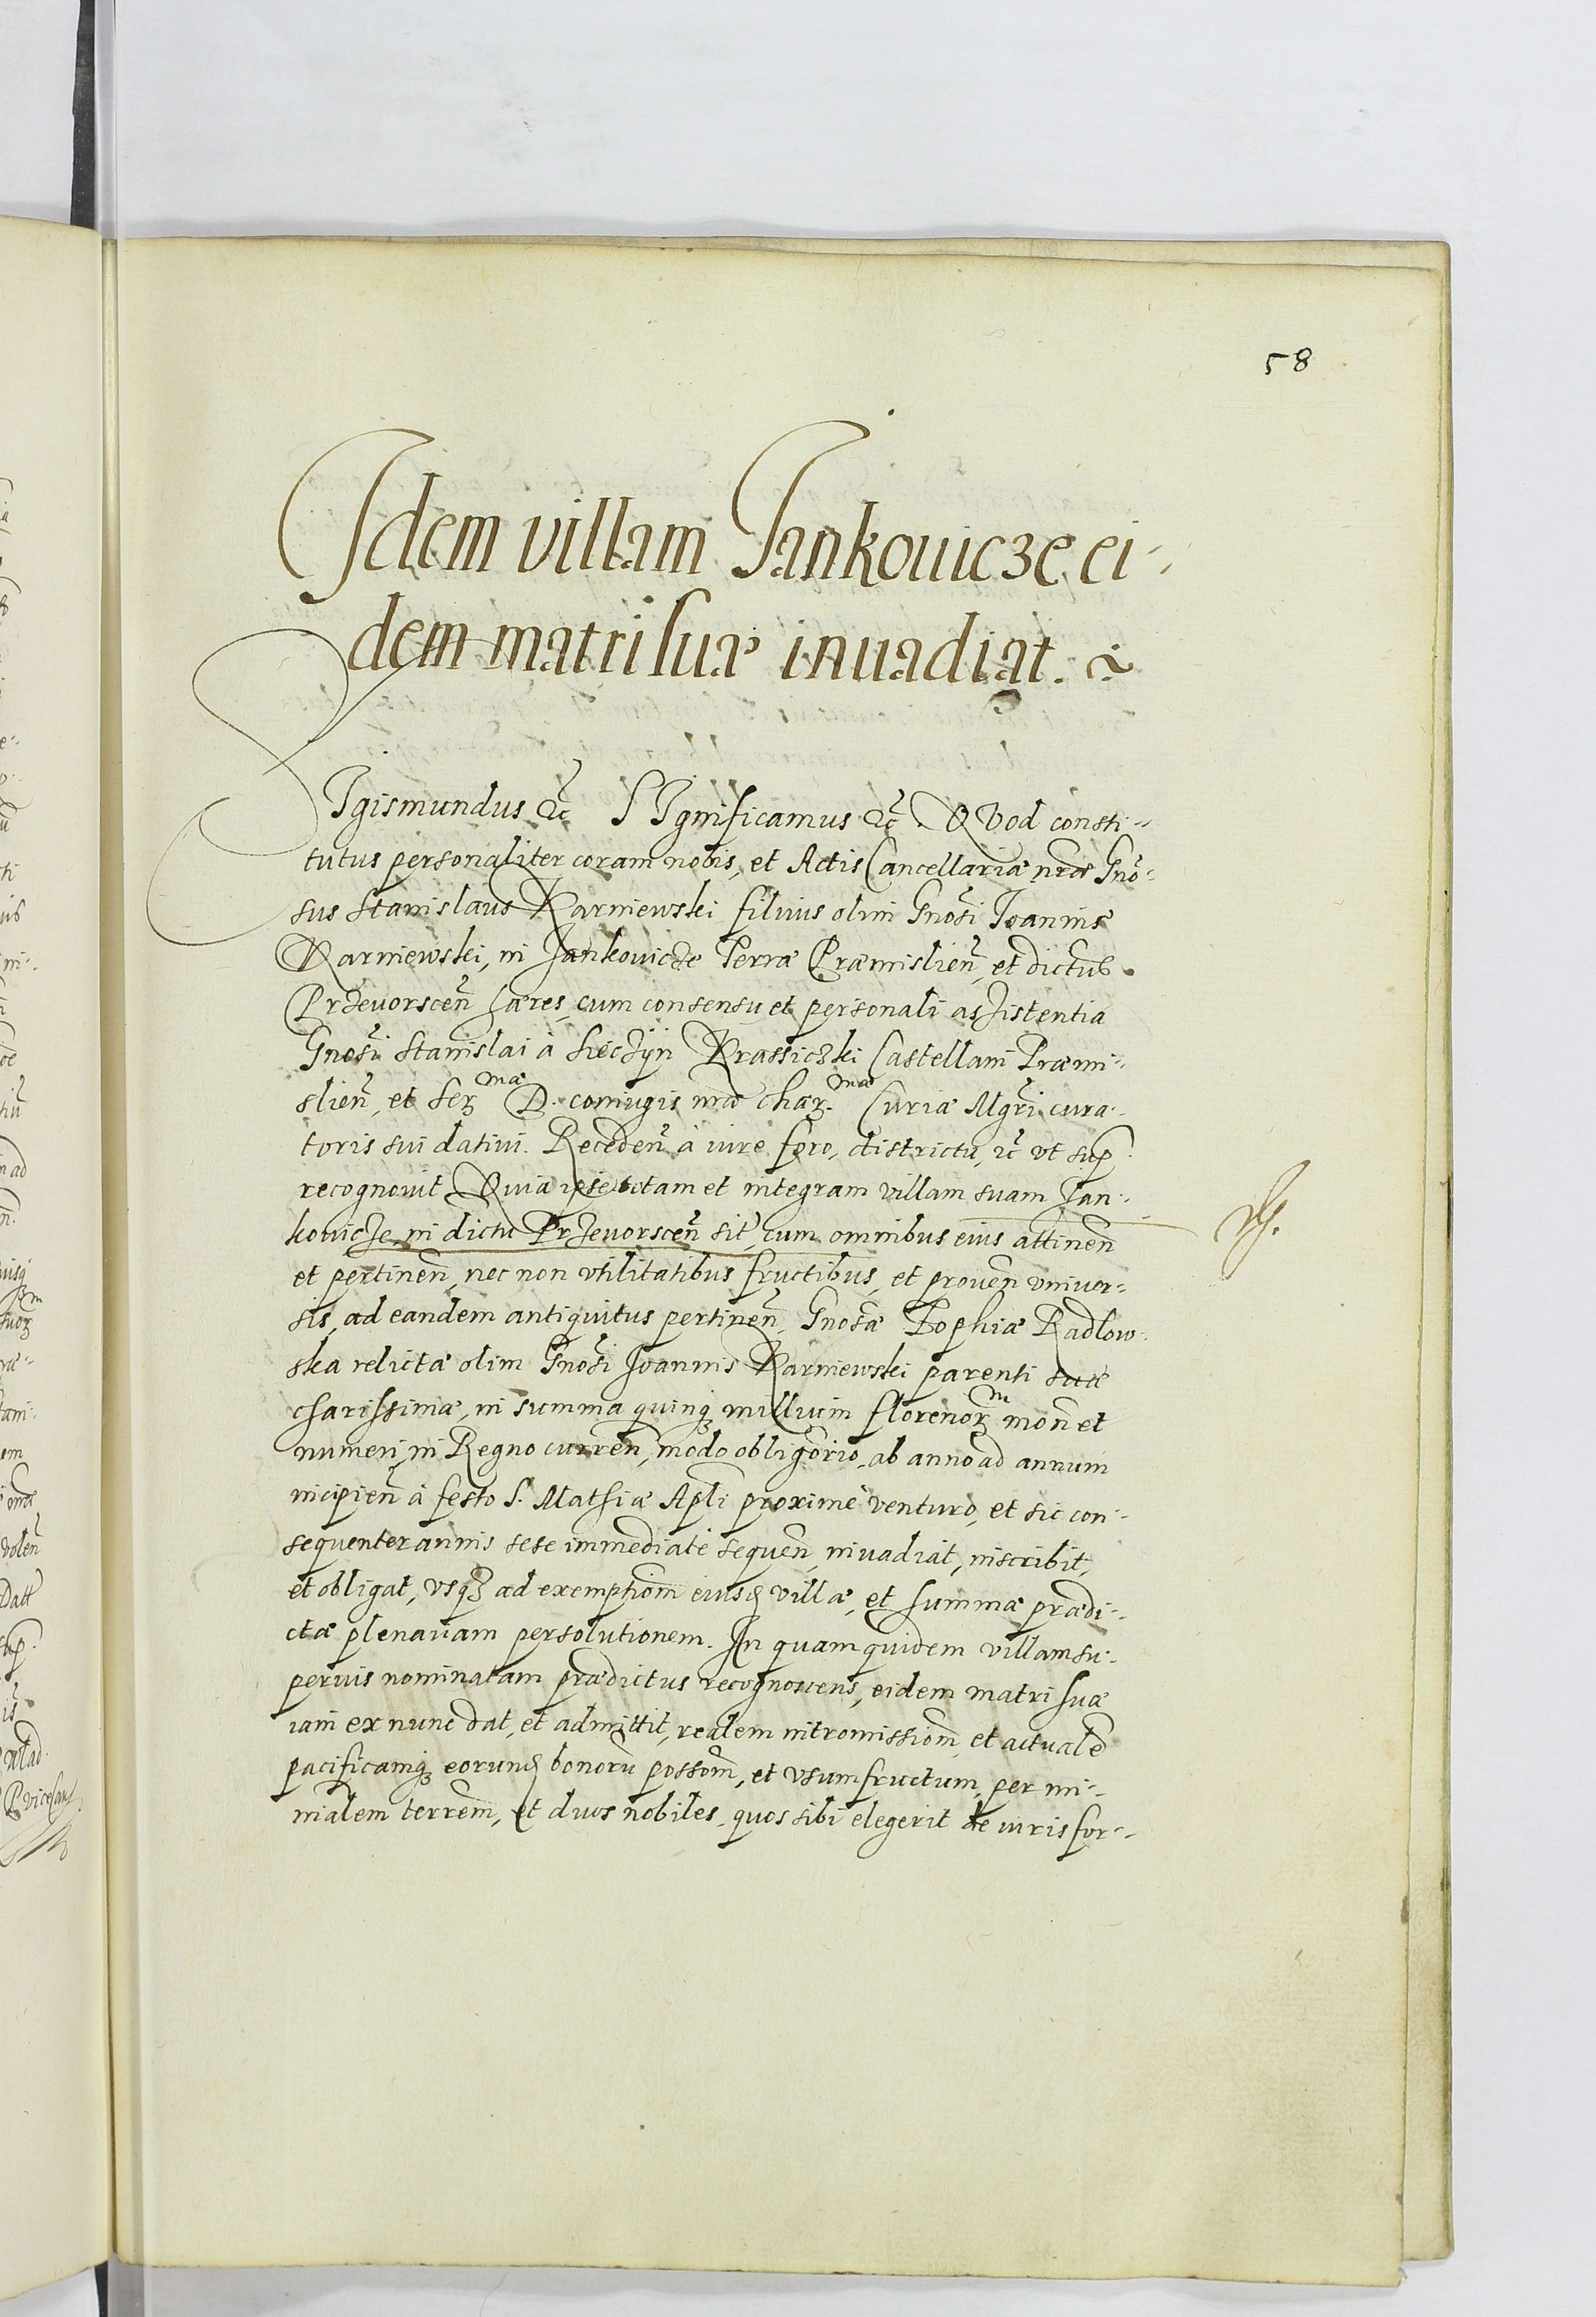 58
Idem villam Jankouicze ei-
dem matri suæ inuadiat.
SIgismundus &c̃ SIgnificamus &c̃. QVod consti-
tutus personaliter coram nobis, et Actis Cancellariæ nr̃æ Gnõ-
sus Stanislaus Karniewski filuius olim Gnõsi Joannis
Karniewski, in Jankouicze Terræ Præmislien̄, et dictus
Przeuorscen̄ hæres, cum consensu et personali assistentia
Gnõsi Stanislai à Sieczÿn Krassiczki Castellani Præmi-
slien̄, et Ser. mæ D. coniugis nr̃æ char. mæ Curiæ Mgr̃i cura-
toris sui datiui. Receden̄ à iure foro, districtu, &c̃ vt sup.
recognouit Quia ipse totam et integram villam suam Jan-
kouicze, in dictu Przeuorscen̄ sit̃, cum omnibus eius attinen̄
et pertinen̄, nec non vtilitatibus fructibus, et prouen̄ vniuer-
sis, ad eandem antiquitus pertinen̄, Gnõsæ Zophiæ Radlow-
ska relictæ olim Gnõsi Joannis Karniewski parenti suæ
charissimæ, in summa quinq; millium florenor. m mon̄ et
numeri, in Regno curren̄, modo obligõrio, ab anno ad annum
incipien̄ à festo S. Mathiæ Apl̃i proximè venturo, et sic con-
sequenter annis sese immediatè sequen̄, inuadiat, inscribit,
et obligat, vsq; ad exemptiom̃ eiusd villæ, et summæ prædi-
ctæ plenariam persolutionem. In quam quidem villam su-
perius nominatam prædictus recognoscens, eidem matri suæ
iam ex nunc dat, et admittit, realem intromissiom̃, et actualẽ
pacificamq; eorund bonorũ possom̃, et vsumfructum, per mi-
nialem terrem̃, et duos nobiles, quos sibi elegerit de iuris for-